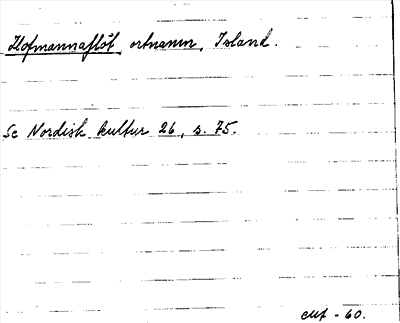 Hofmannaflöt, ortnamn, Island.
Se Nordisk kultur 26, s. 75.
- 60.